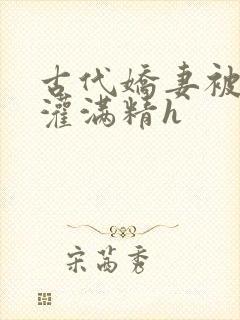 古代嬌妻被
灌滿精h
宋茵秀